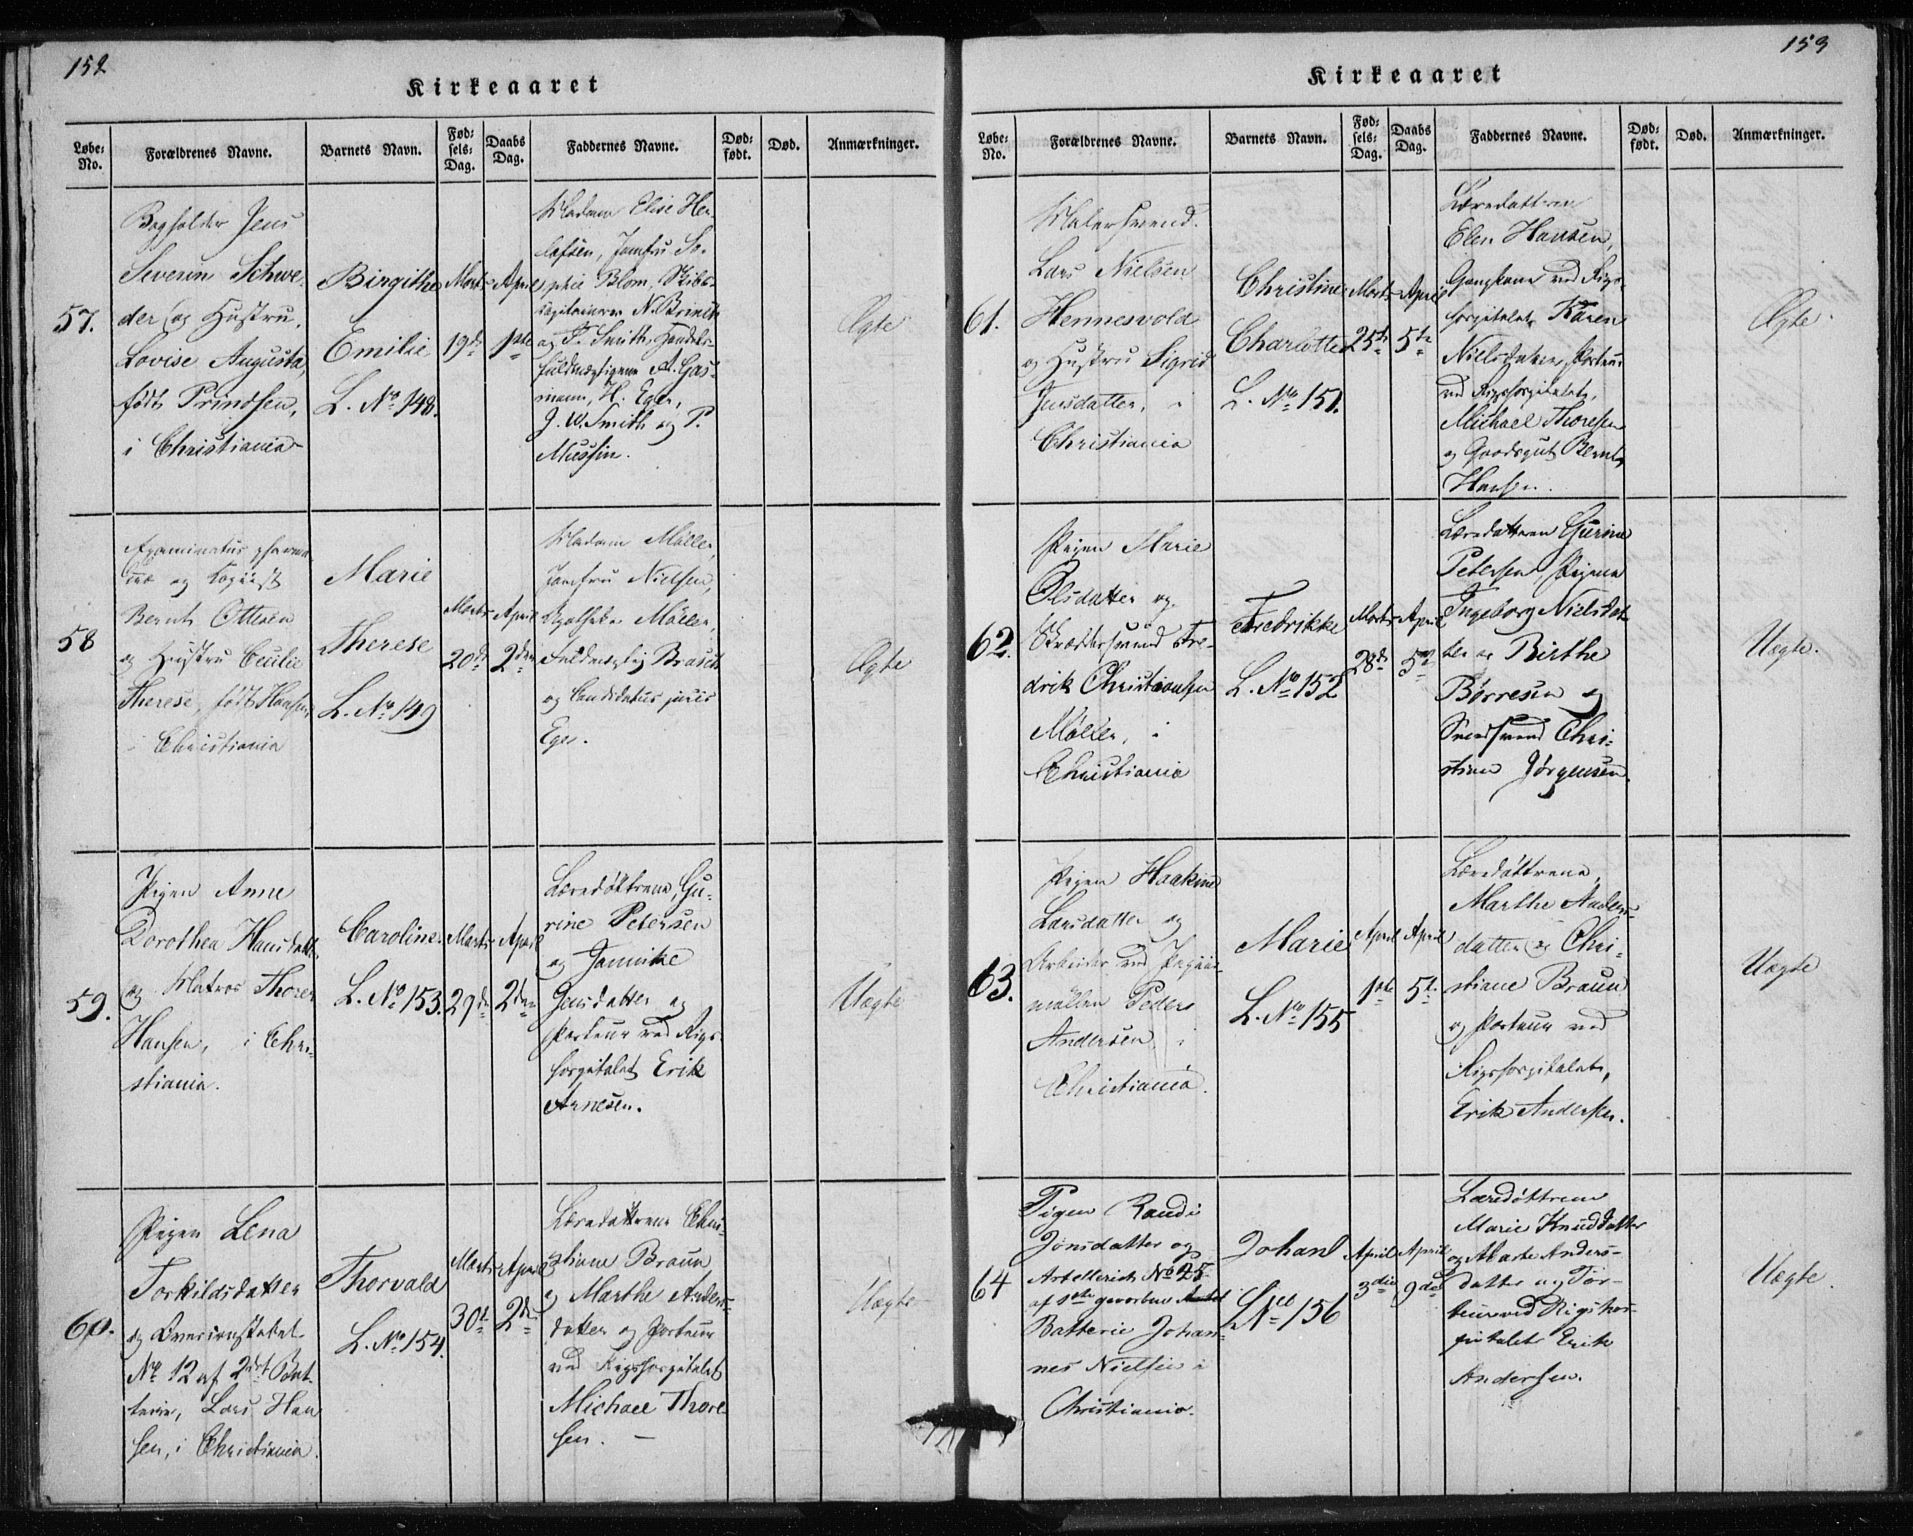 152
Kirkeaaret
Løbe-No.
Forældrenes Navne.
Barnets Navn.
Fødsels-Dag.
Daabs Dag.
Faddernes Navne.
Dødfødt.
Død.
Anmærkninger.
57.
Bogholder Jens
Severin Schwe-
der og Hustru,
Lovise Augusta,
født Prindsen,
i Christiania
Birgithe
Emilie
L. No 148.
Marts
19de
April
1ste
Madam Elise Her-
lofsen, Jomfru So-
phie Blom, Skibs-
capitainerne N. Brinch
og F. Smith, Handels-
fuldmægtigene A. Gas-
mann, H. Eger,
J. W. Smith og P.
Mussin.
Ægte
58
Examinatus pharma
ciæ og Copiist
Bernth Ottesen
og Hustru Cecilie
Therese, født Hansen,
i Christiania
Marie
Therese
L. No 149
Marts
20de
April
2den
Madam Møller,
Jomfru Nielsen,
Apotheker Møller,
Fuldmægtig Brasch
og Candidatus juris
Eger.
Ægte
59.
Pigen Anne
Dorothea Hansdatter
og Matros Thorer
Hansen, i Chri-
stiania.
Caroline.
L. No 153.
Marts
29de
April
2den
Læredøttrene, Gu-
rine Petersen
og Jannike
Jensdatter og
Porteur ved Rigs
hospitalet Erik
Arnesen.
Uægte
60.
Pigen Lena
Torkildsdatter
og Overconstabel
No 12 af 2det Bat-
terie, Lars Han
sen, i Christiania.
Thorvald
L. No 154.
Marts
30te
April
2den
Læredøttrene Chri-
stiane Braun,
og Marthe Anders-
datter og Porteur
ved Rigshospitalet
Michael Thore
sen. —
Uægte
153
Kirkeaaret
Løbe-No.
Forældrenes Navne.
Barnets Navn.
Fødsels-Dag.
Daabs Dag.
Faddernes Navne.
Dødfødt.
Død.
Anmærkninger.
61.
Malersvend.
Lars Nielsen
Hennesvold
og Hustru Sigrid
Jensdatter, i
Christiania
Christine
Charlotte
L. No 151.
Marts
25de
April
5te
Læredatteren
Elen Hansen,
Gangkone ved Rigs-
hospitalet Karen
Nielsdatter, Porteur
ved Rigshospitalet,
Michael Thoresen
og Gaardsgut Bernt
Hansen.
Ægte.
62.
Pigen Marie
Olsdatter og
Skræddersvend Fre-
drik Christiansen
Møller, i
Christiania
Fredrikke
L. No 152
Marts
28de
April
5te
Læredatteren Gurine
Petersen, Pigerne
Ingeborg Nielsdat-
ter og Birthe
Børresen og
Svend Chri-
stian Jørgensen.
Uægte.
63.
Pigen Haakine
Larsdatter og
Arbeider ved Papiir
møllen Peder
Andersen, i
Christiania.
Marie
L. No 155
April
1ste
April
5te
Læredøttrene,
Marthe Anders-
datter og Chri-
stiane Braun
og Porteur ved
Rigshospitalet,
Erik Andersen.
Uægte
64
Pigen Randi
Jonsdatter og
Artellerist No 25
af 1ste gevorbne
Batterie Johan-
nes Nielsen i
Christiania.
Johan
L No 156
April
3die
April
9de
Læredøttrene
Marie Knudsdatter
og Marte Anders-
datter og Por-
teur ved Rigshos-
pitalet Erik
Andersen.
Uægte.